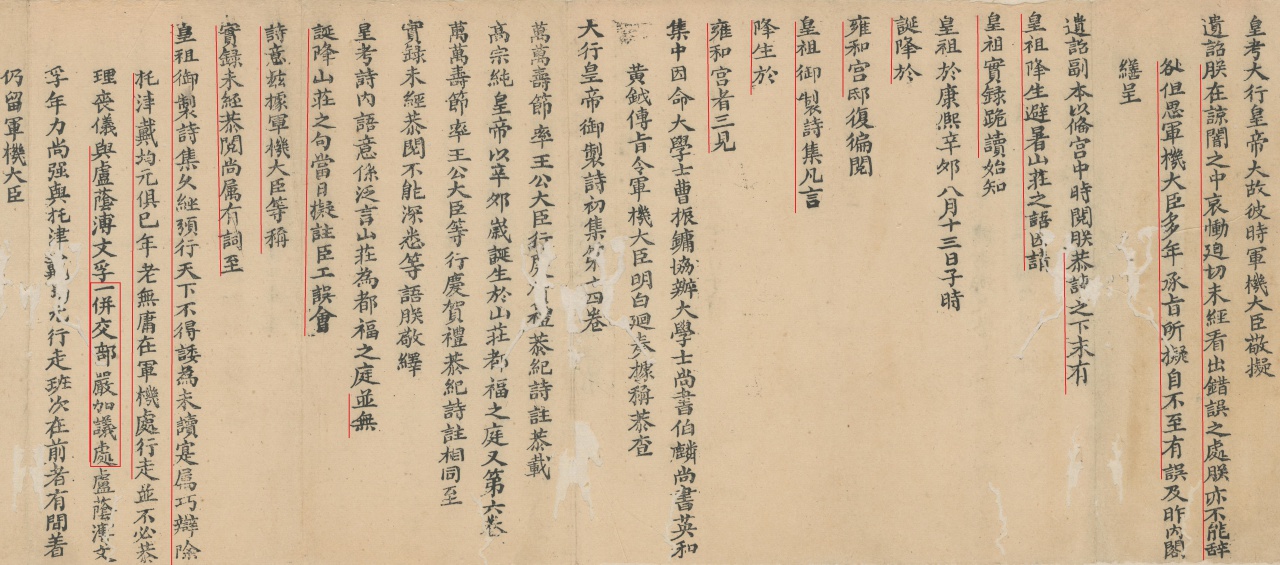 皇考大行皇帝大故彼時軍機大臣敬擬
遺詔朕在諒闇之中哀慟迫切未經看出錯誤之處朕亦不能辞
咎但思軍機大臣多年承旨所擬自不至有誤及昨內閣
繕呈
遺詔副本以備宮中時閱朕恭讀之下末有
皇祖降生避暑山莊之語因請
皇祖實録跪讀始知
皇祖於康熙辛夘八月十三日子時
誕降於
雍和宮邸復徧閱
皇祖御製詩集凡言
降生於
雍和宮者三見
集中因命大學士曹振鏞協辦大學士尚書伯麟尚書英和
黃鉞傳旨令軍機大臣明白廻奏據稱恭查
大行皇帝御製詩初集第十四卷
萬萬壽節率王公大臣行慶賀禮恭紀詩註恭載
高宗純皇帝以辛夘歲誕生於山莊都福之庭又第六卷
萬萬壽節率王公大臣等行慶賀禮恭紀詩註相同至
實録未經恭閱不能深悉等語朕敬繹
皇考詩內語意係泛言山莊為都福之庭並無
誕降山莊之句當日擬註臣工誤會
詩意玆據軍機大臣等稱
實録未經恭閱尚属有詞至
皇祖御製詩集久經頒行天下不得諉為未讀寔属巧辯除
托津戴均元俱已年老無庸在軍機處行走並不必恭
理喪儀與盧蔭溥文孚一併交部嚴加議處盧蔭溥文
孚年力尚强與托津戴均元行走班次在前者有間着
仍留軍機大臣